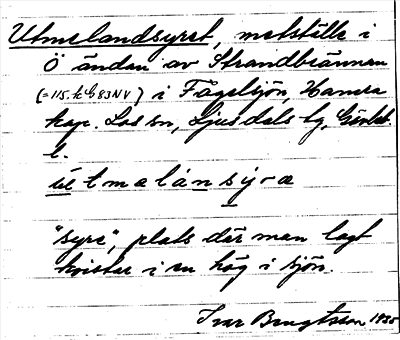 Utmelandsyret, metställe i
Ö ändan av Strandbrännan
(=115. k G 83 NV) i Fågelsjön, Hamra
kap. Los sn, Ljusdals tg, Gävleb.
l.
ùtmelánsyra
"syre", plats där man lagt
kvistar i en hög i sjön.
Ivar Bengtsson 1935